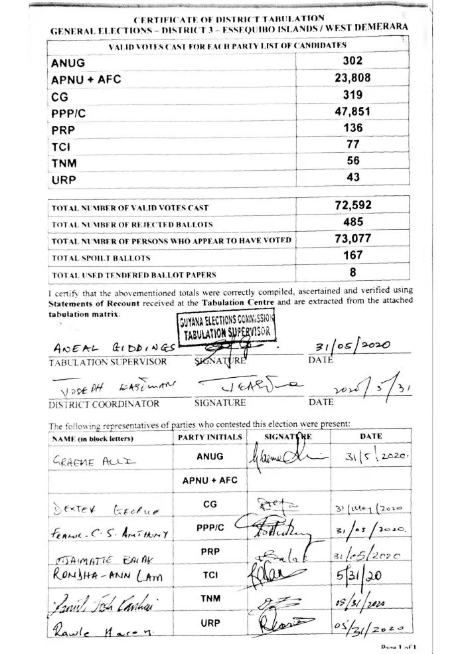 CERTIFICATE OF DISTRICT TABULATION
GENERAL ELECTIONS – DISTRICT 3 – ESSEQUIBO ISLANDS / WEST DEMERARA
VALID VOTES CAST FOR EACH PARTY LIST OF CANDIDATES
ANUG 302
APNU + AFC 23,808
CG 319
PPP/C 47,851
PRP 136
TCI 77
TNM 56
URP 43
TOTAL NUMBER OF VALID VOTES CAST 72,592
TOTAL NUMBER OF REJECTED BALLOTS 485
TOTAL NUMBER OF PERSONS WHO APPEAR TO HAVE VOTED 73,077
TOTAL SPOILT BALLOTS 167
TOTAL USED TENDERED BALLOT PAPERS 8
I certify that the abovementioned totals were correctly compiled, ascertained and verified using
Statements of Recount received at the Tabulation Centre and are extracted from the attached
tabulation matrix.
GUYANA ELECTIONS COMMISSION
TABULATION SUPERVISOR
ANEAL GIDDINGS 31/05/2020
TABULATION SUPERVISOR SIGNATURE DATE
2020/5/31
DISTRICT COORDINATOR SIGNATURE DATE
The following representatives of parties who contested this election were present:
NAME (in block letters) PARTY INITIALS SIGNATURE DATE
GRAEME ALLI ANUG 31/5/2020.
APNU + AFC
DEXTER GEORGE CG 31/May/2020
FRANK. C. S. ANTHONY PPP/C 31/05/2020.
PRP 31/05/2020
RONSHA-ANN LAM TCI 5/31/20
TNM 05/31/2020
Rawle URP 05/31/2020
Page 1 of 1